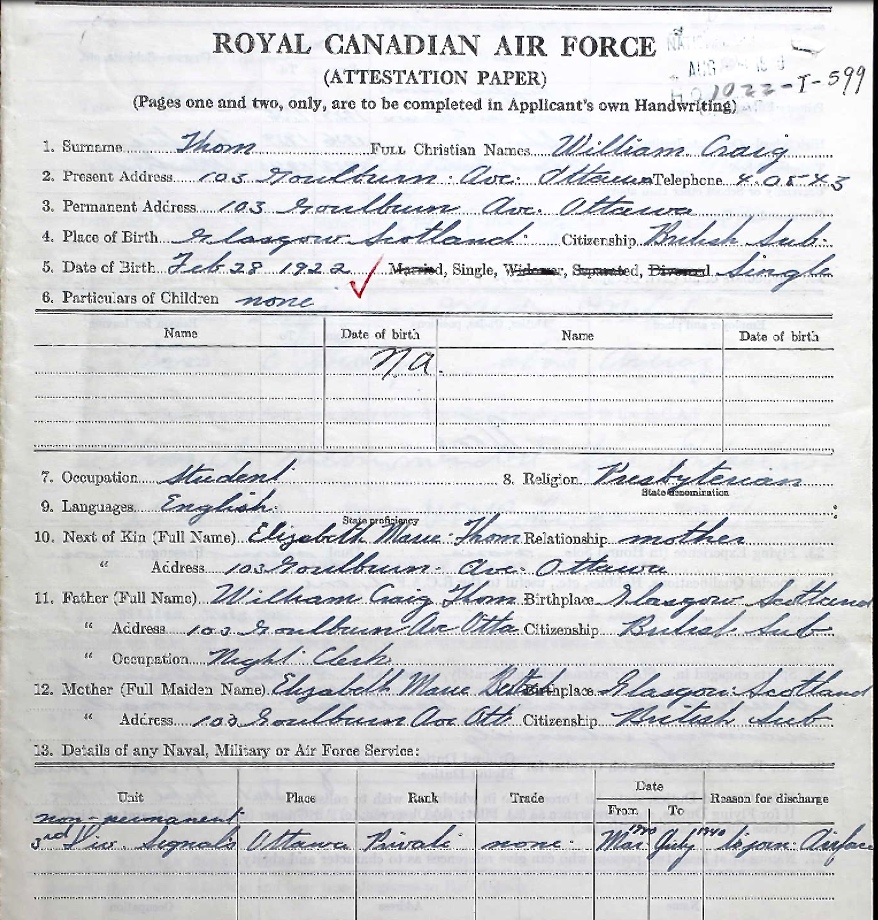 ROYAL CANADIAN AIR FORCE
(ATTESTATION PAPER)
AUG
(Pages one and two, only, are to be completed in Applicant's own Handwriting)
H Q 1022-T-599
1. Surname Thom FULL Christian Names William Craig
2. Present Address 103 Goulburn Ave. Ottawa Telephone 4-0543
3. Permanent Address 103 Goulburn Ave. Ottawa
4. Place of Birth Glasgow Scotland. Citizenship British Sub.
5. Date of Birth Feb 28 1922 Married, Single, Widower, Separated, Divorced Single
6. Particulars of Children none
Name Date of birth Name Date of birth
N.A.
7. Occupation Student 8. Religion Presbyterian
State denomination
9. Languages English.
State proficiency
10. Next of Kin (Full Name) Elizabeth Marie Thom Relationship mother
" Address 103 Goulburn Ave. Ottawa
11. Father (Full Name) William Craig Thom Birthplace Glasgow Scotland
" Address 103 Goulburn Ave Otta Citizenship British Sub
" Occupation Night Clerk
12. Mother (Full Maiden Name) Elizabeth Marie Birthplace Glasgow Scotland
" Address 103 Goulburn Ave Ott. Citizenship British Sub
13. Details of any Naval, Military or Air Force Service:
Unit Place Rank Trade Date Reason for discharge
From To
non-permanent
3rd Div. Signals Ottawa Private none. Mar 1940 July 1940 to join Airforce